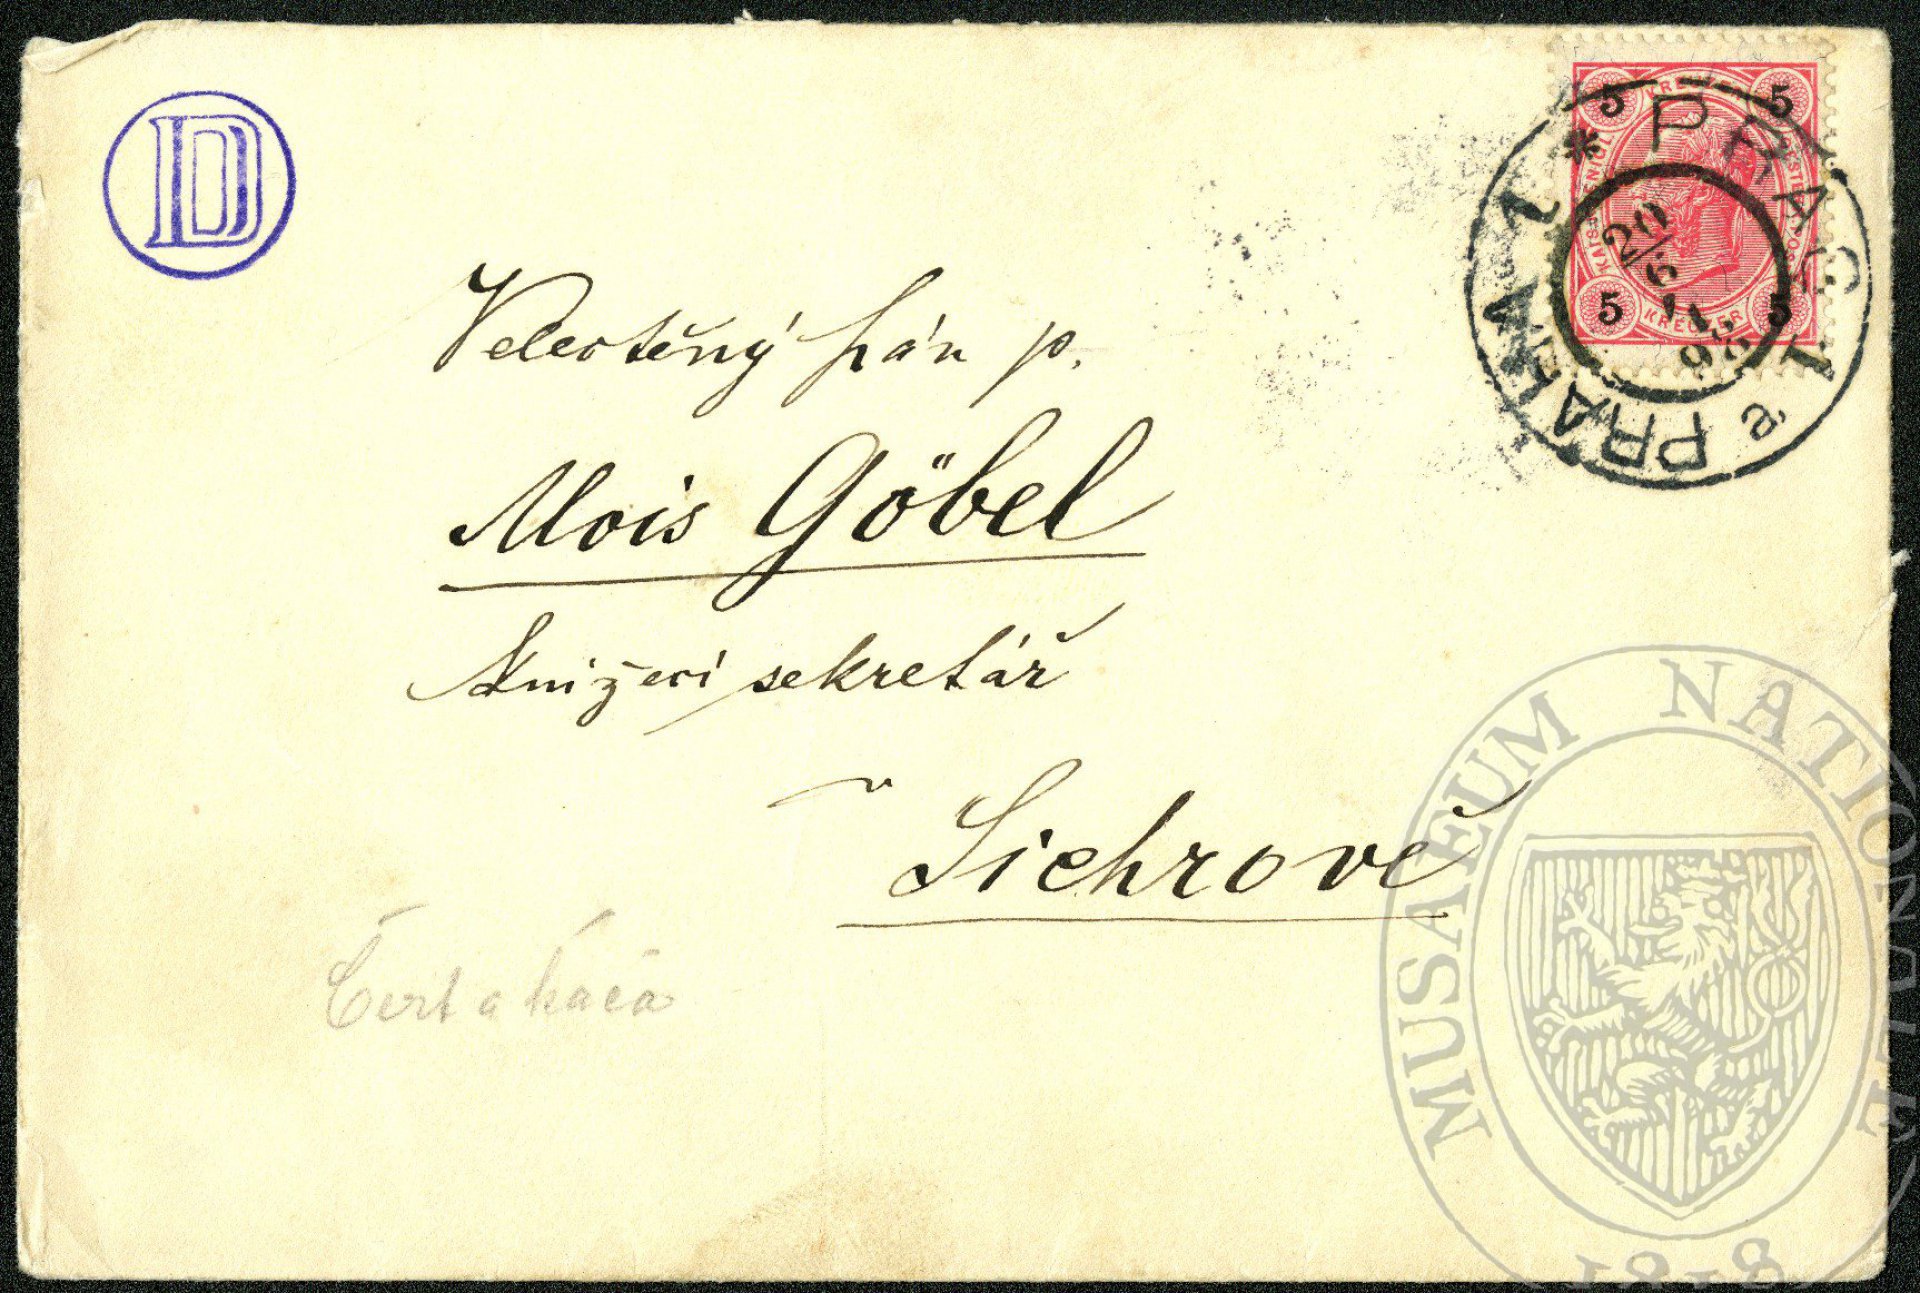 D
5 KREUZER 5
5 KREUZER 5
* PRAG 1 & PRAHA 1
20/6
11
Velectěný pán p.
Alois Göbel
knížecí sekretář
v
Sichrově
Čert a Káča
MUSAEUM NATIONALE
1818